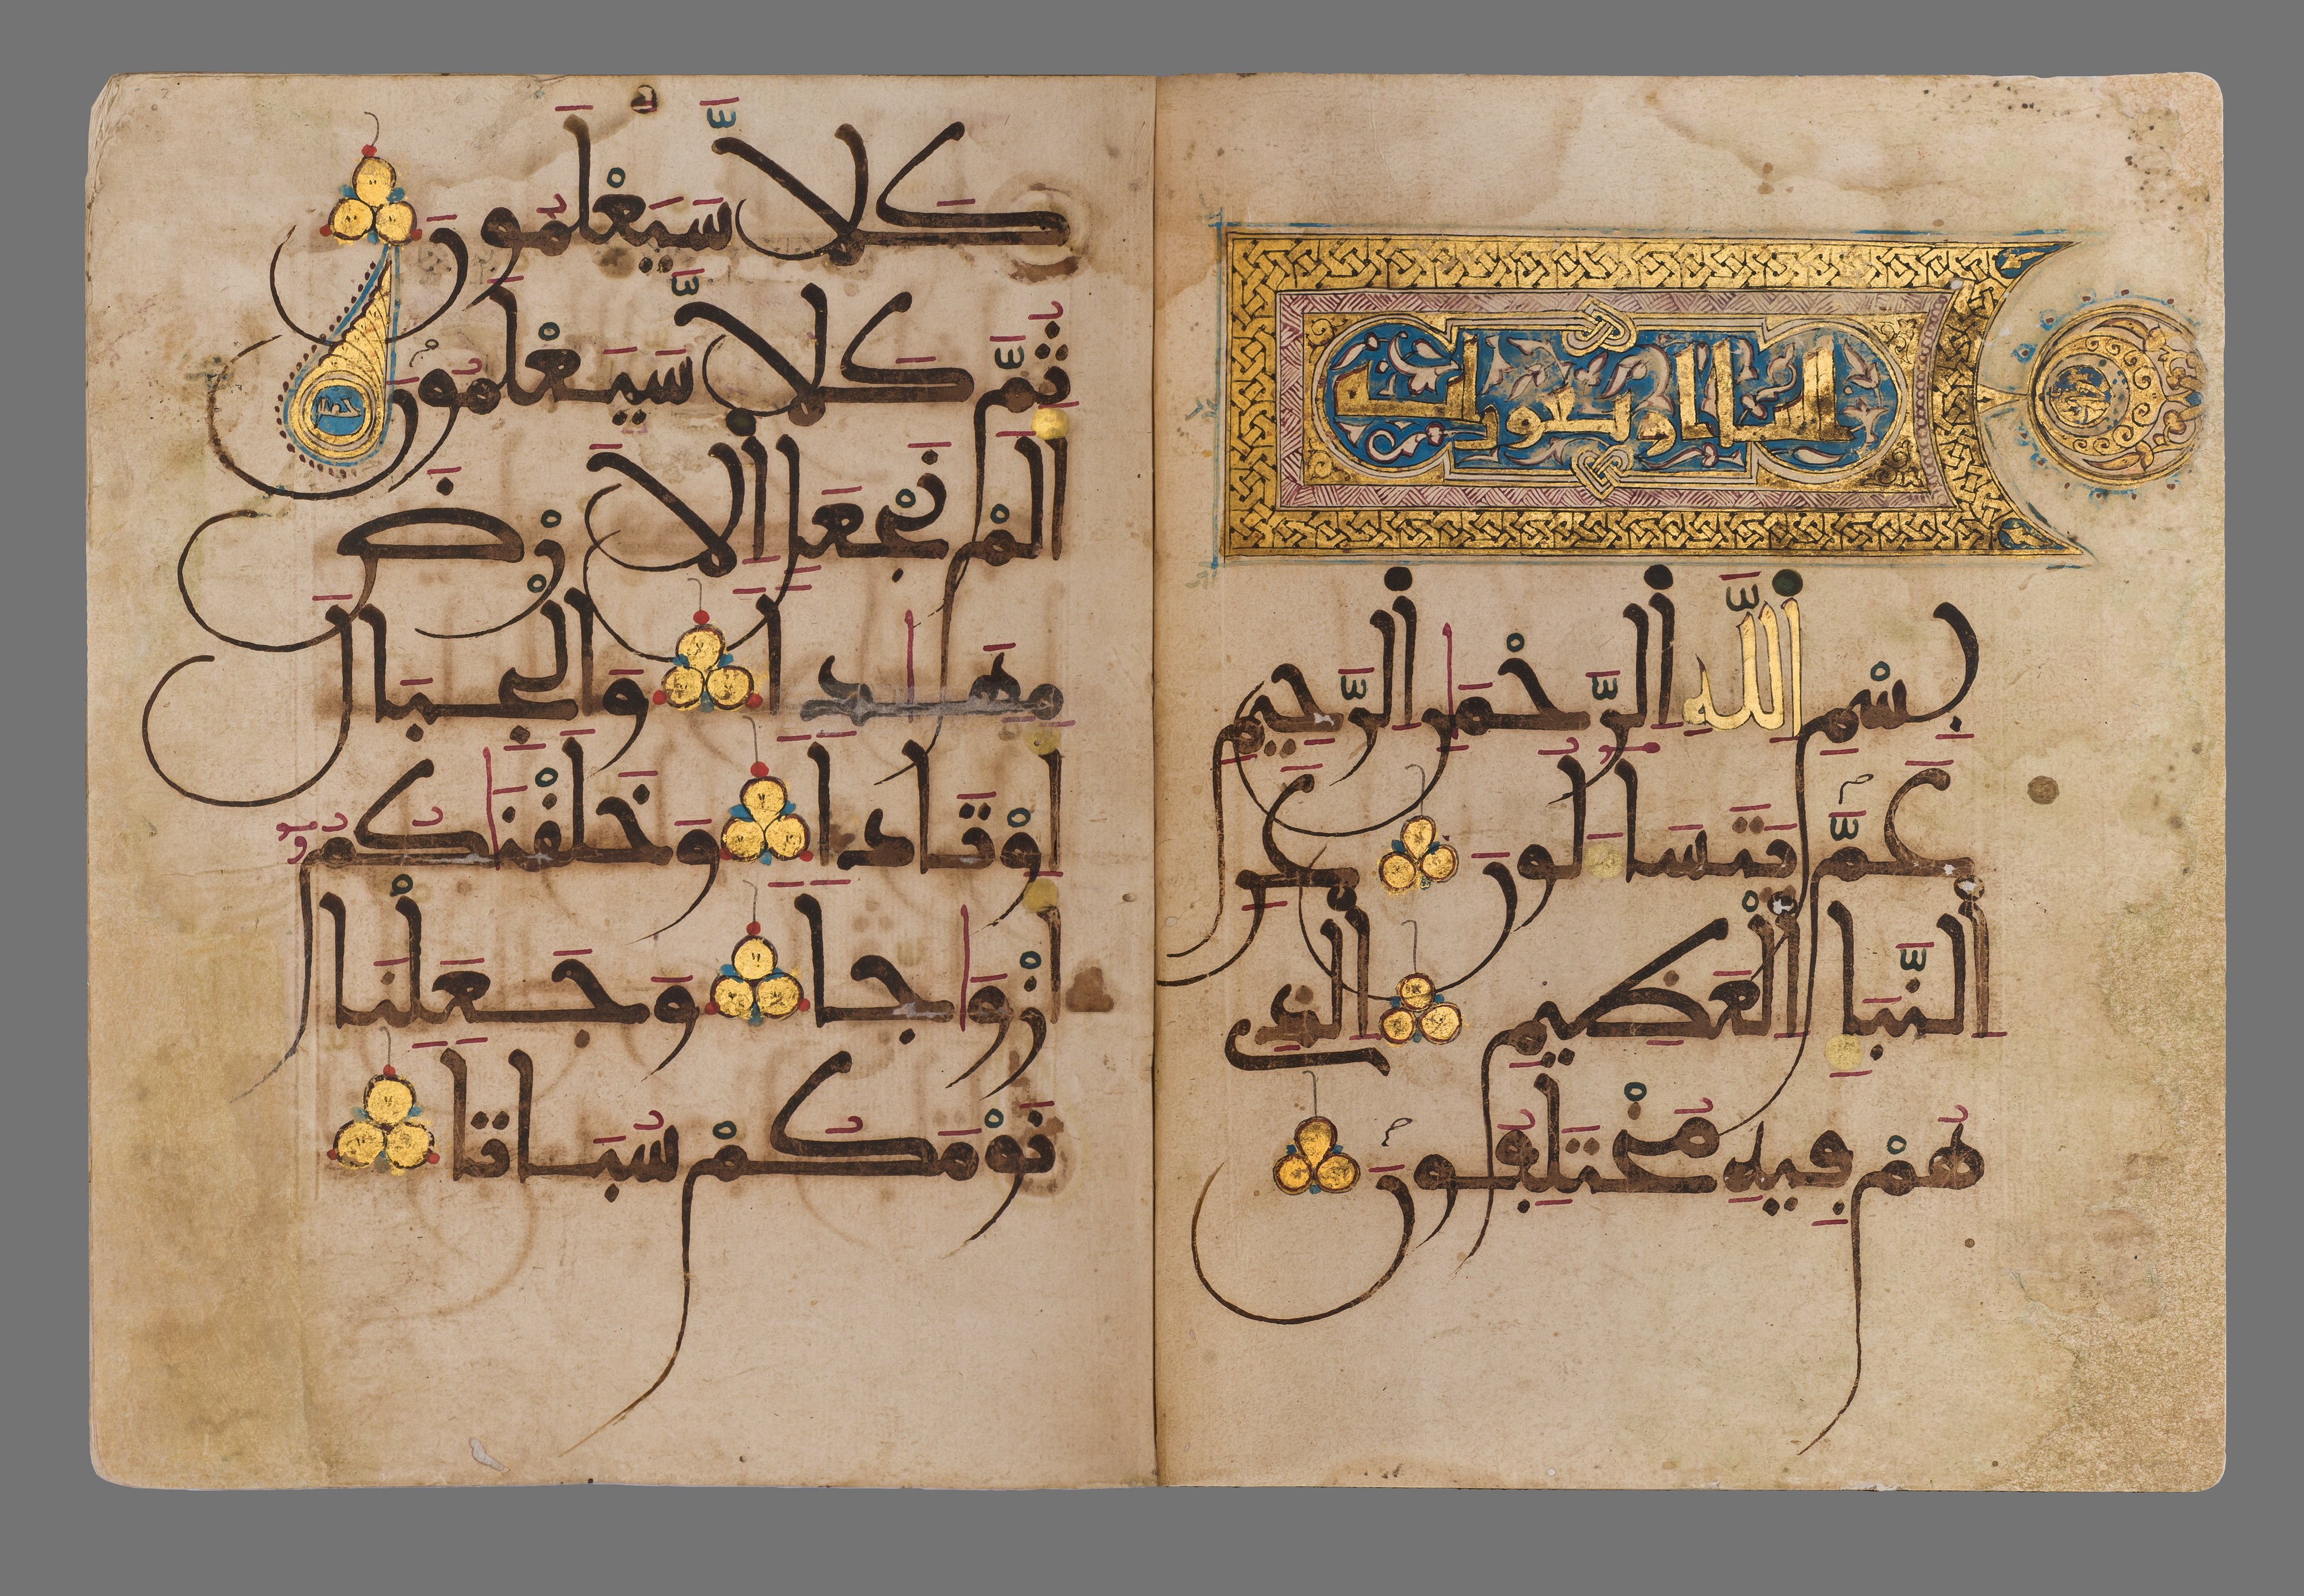 النبا اربعون اية
بِسْمِ اللَّهِ الرَّحْمَٰنِ الرَّحِيمِ
عَمَّ يَتَسَاءَلُونَ عَنِ
النَّبَإِ الْعَظِيمِ الَّذِي
هُمْ فِيهِ مُخْتَلِفُونَ
كَلَّا سَيَعْلَمُونَ
ثُمَّ كَلَّا سَيَعْلَمُونَ
أَلَمْ نَجْعَلِ الْأَرْضَ
مِهَٰدًا وَالْجِبَالَ
أَوْتَادًا وَخَلَقْنَٰكُمُ
أَزْوَٰجًا وَجَعَلْنَا
نَوْمَكُمْ سُبَاتًا